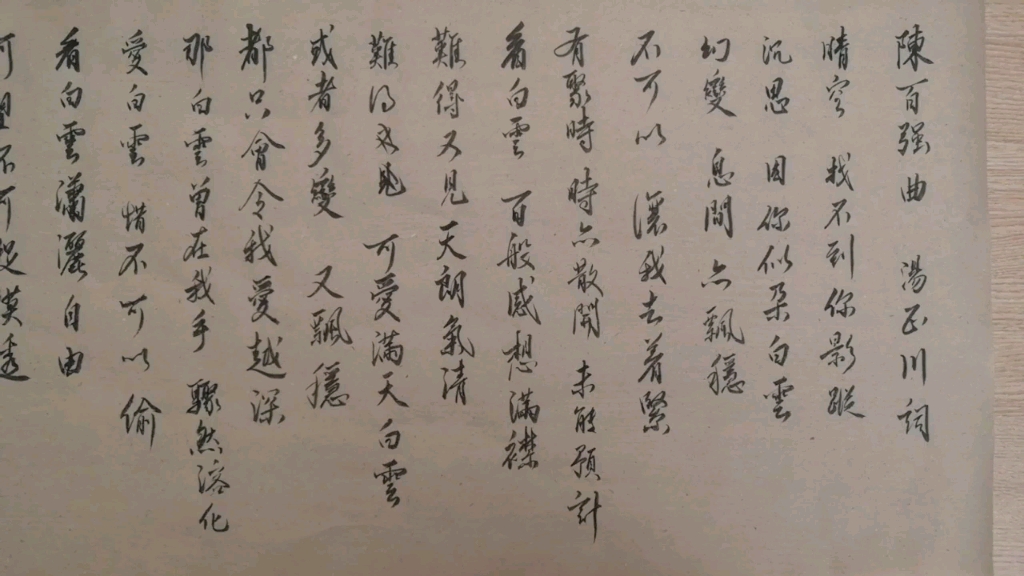 陳百强曲 湯正川詞
晴空 找不到你影蹤
沉思 因你似朵白雲
幻變 息間亦飄穩
不可以 讓我去着緊
有聚時 時亦散開 未能預計
看白雲 百般感想滿襟
難得又見天朗氣清
難得又見 可愛滿天白雲
或者多變 又飄穩
都只會令我愛越深
那白雲曾在我手 驟然溶化
愛白雲 惜不可以偷
看白雲瀟灑自由
可望不可捉摸透